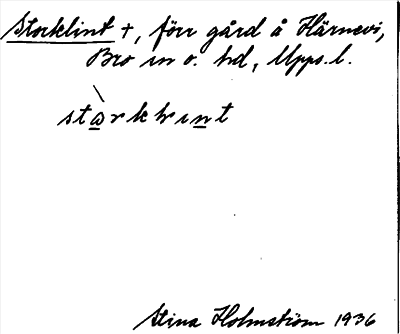 Stocklint +, förr gård å Härnevi,
Bro sn o. hd, Upps. l.
stàrkhint
Stina Holmström 1936